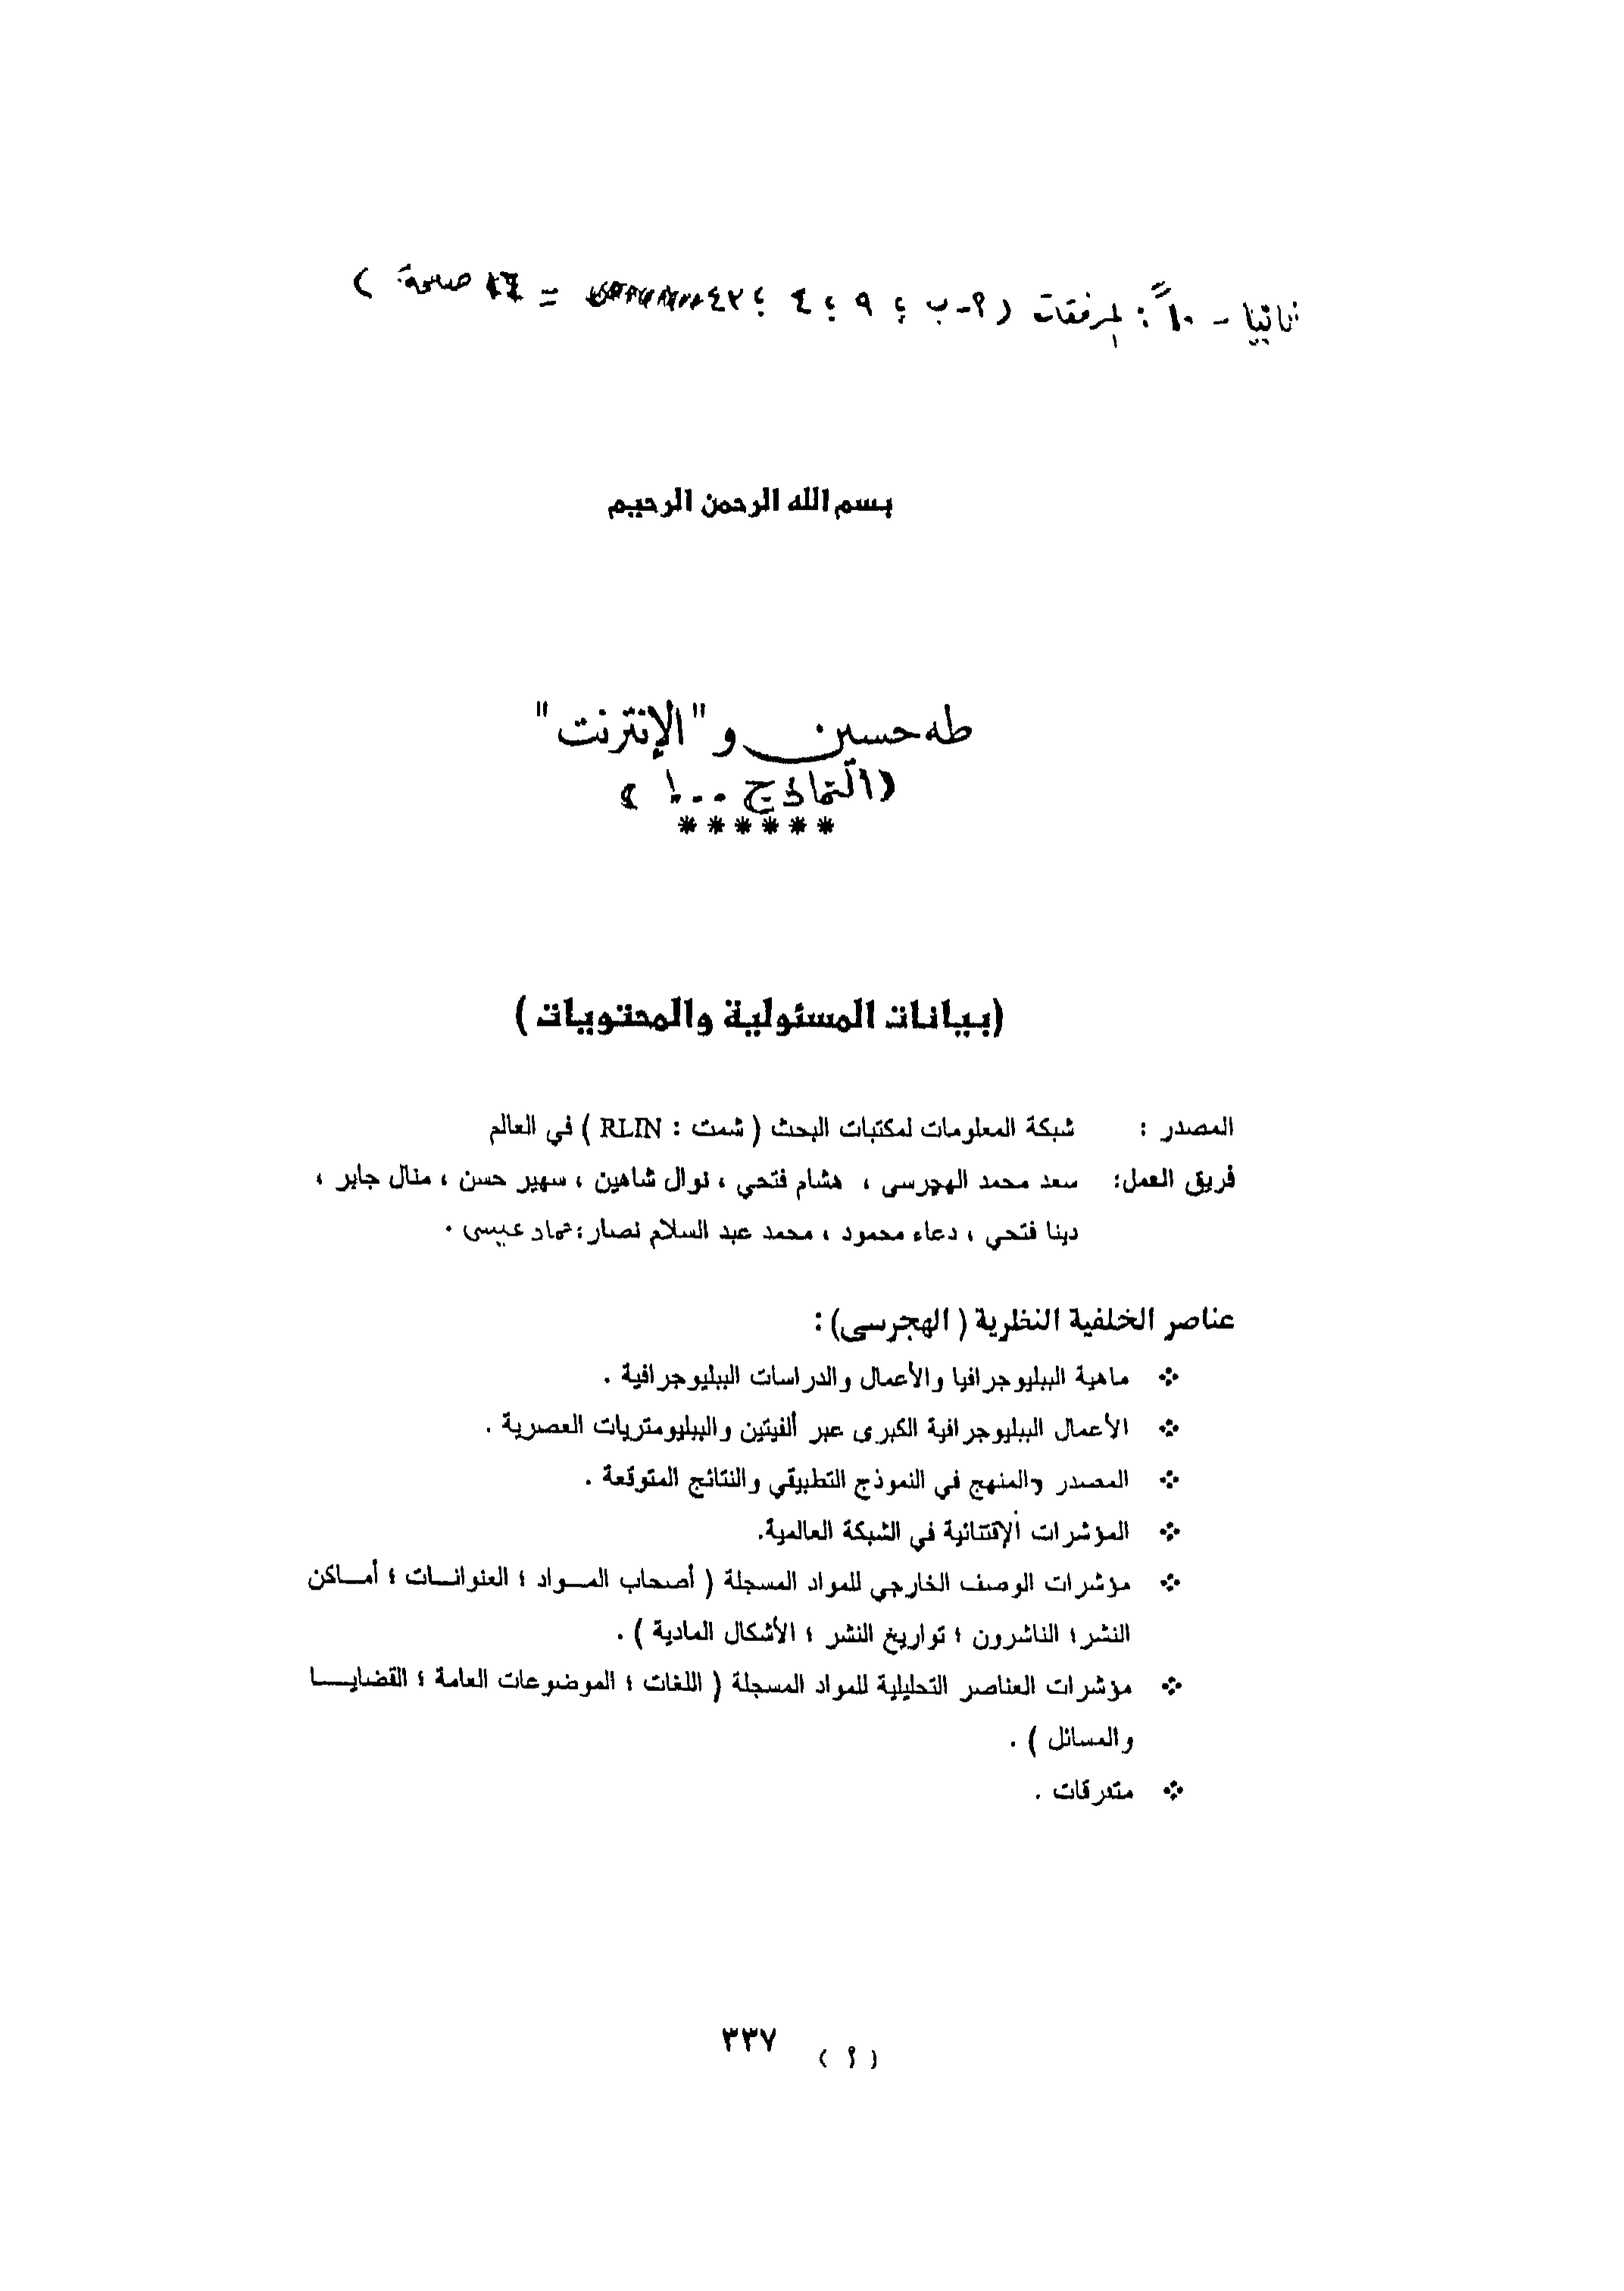 ثانيا - ١٠ً : المرفقات (أ-ب ؛ ٩ ؛ ٤ ؛ ٤٢ = صفحة )
بسم الله الرحمن الرحيم
طه حسين و "الإنترنت"
(النماذج ١٠٠)
******
(بيانات المسئولية والمحتويات )
المصدر : شبكة المعلومات لمكتبات البحث ( شمت : RLIN ) في العالم
فريق العمل: سعد محمد الهجرسى ، هشام فتحي ، نوال شاهين ، سهير حسن ، منال جابر ،
دينا فتحي ، دعاء محمود ، محمد عبد السلام نصار ؛ عماد عيسى .
عناصر الخلفية النظرية ( الهجرسى) :
❖ ماهية الببليوجرافيا والأعمال والدراسات الببليوجرافية .
❖ الأعمال الببليوجرافية الكبرى عبر ألفيتين والببليومتريات العصرية .
❖ المصدر والمنهج في النموذج التطبيقي والنتائج المتوقعة .
❖ المؤشرات الإقتنائية في الشبكة العالمية.
❖ مؤشرات الوصف الخارجي للمواد المسجلة ( أصحاب المـــواد ؛ العنوانـــات ؛ أمـــاكن
النشر ؛ الناشرون ؛ تواريخ النشر ؛ الأشكال المادية ) .
❖ مؤشرات العناصر التحليلية للمواد المسجلة ( اللغات ؛ الموضوعات العامة ؛ القضايـــا
والمسائل ) .
❖ متفرقات .
٣٣٧ ( أ )